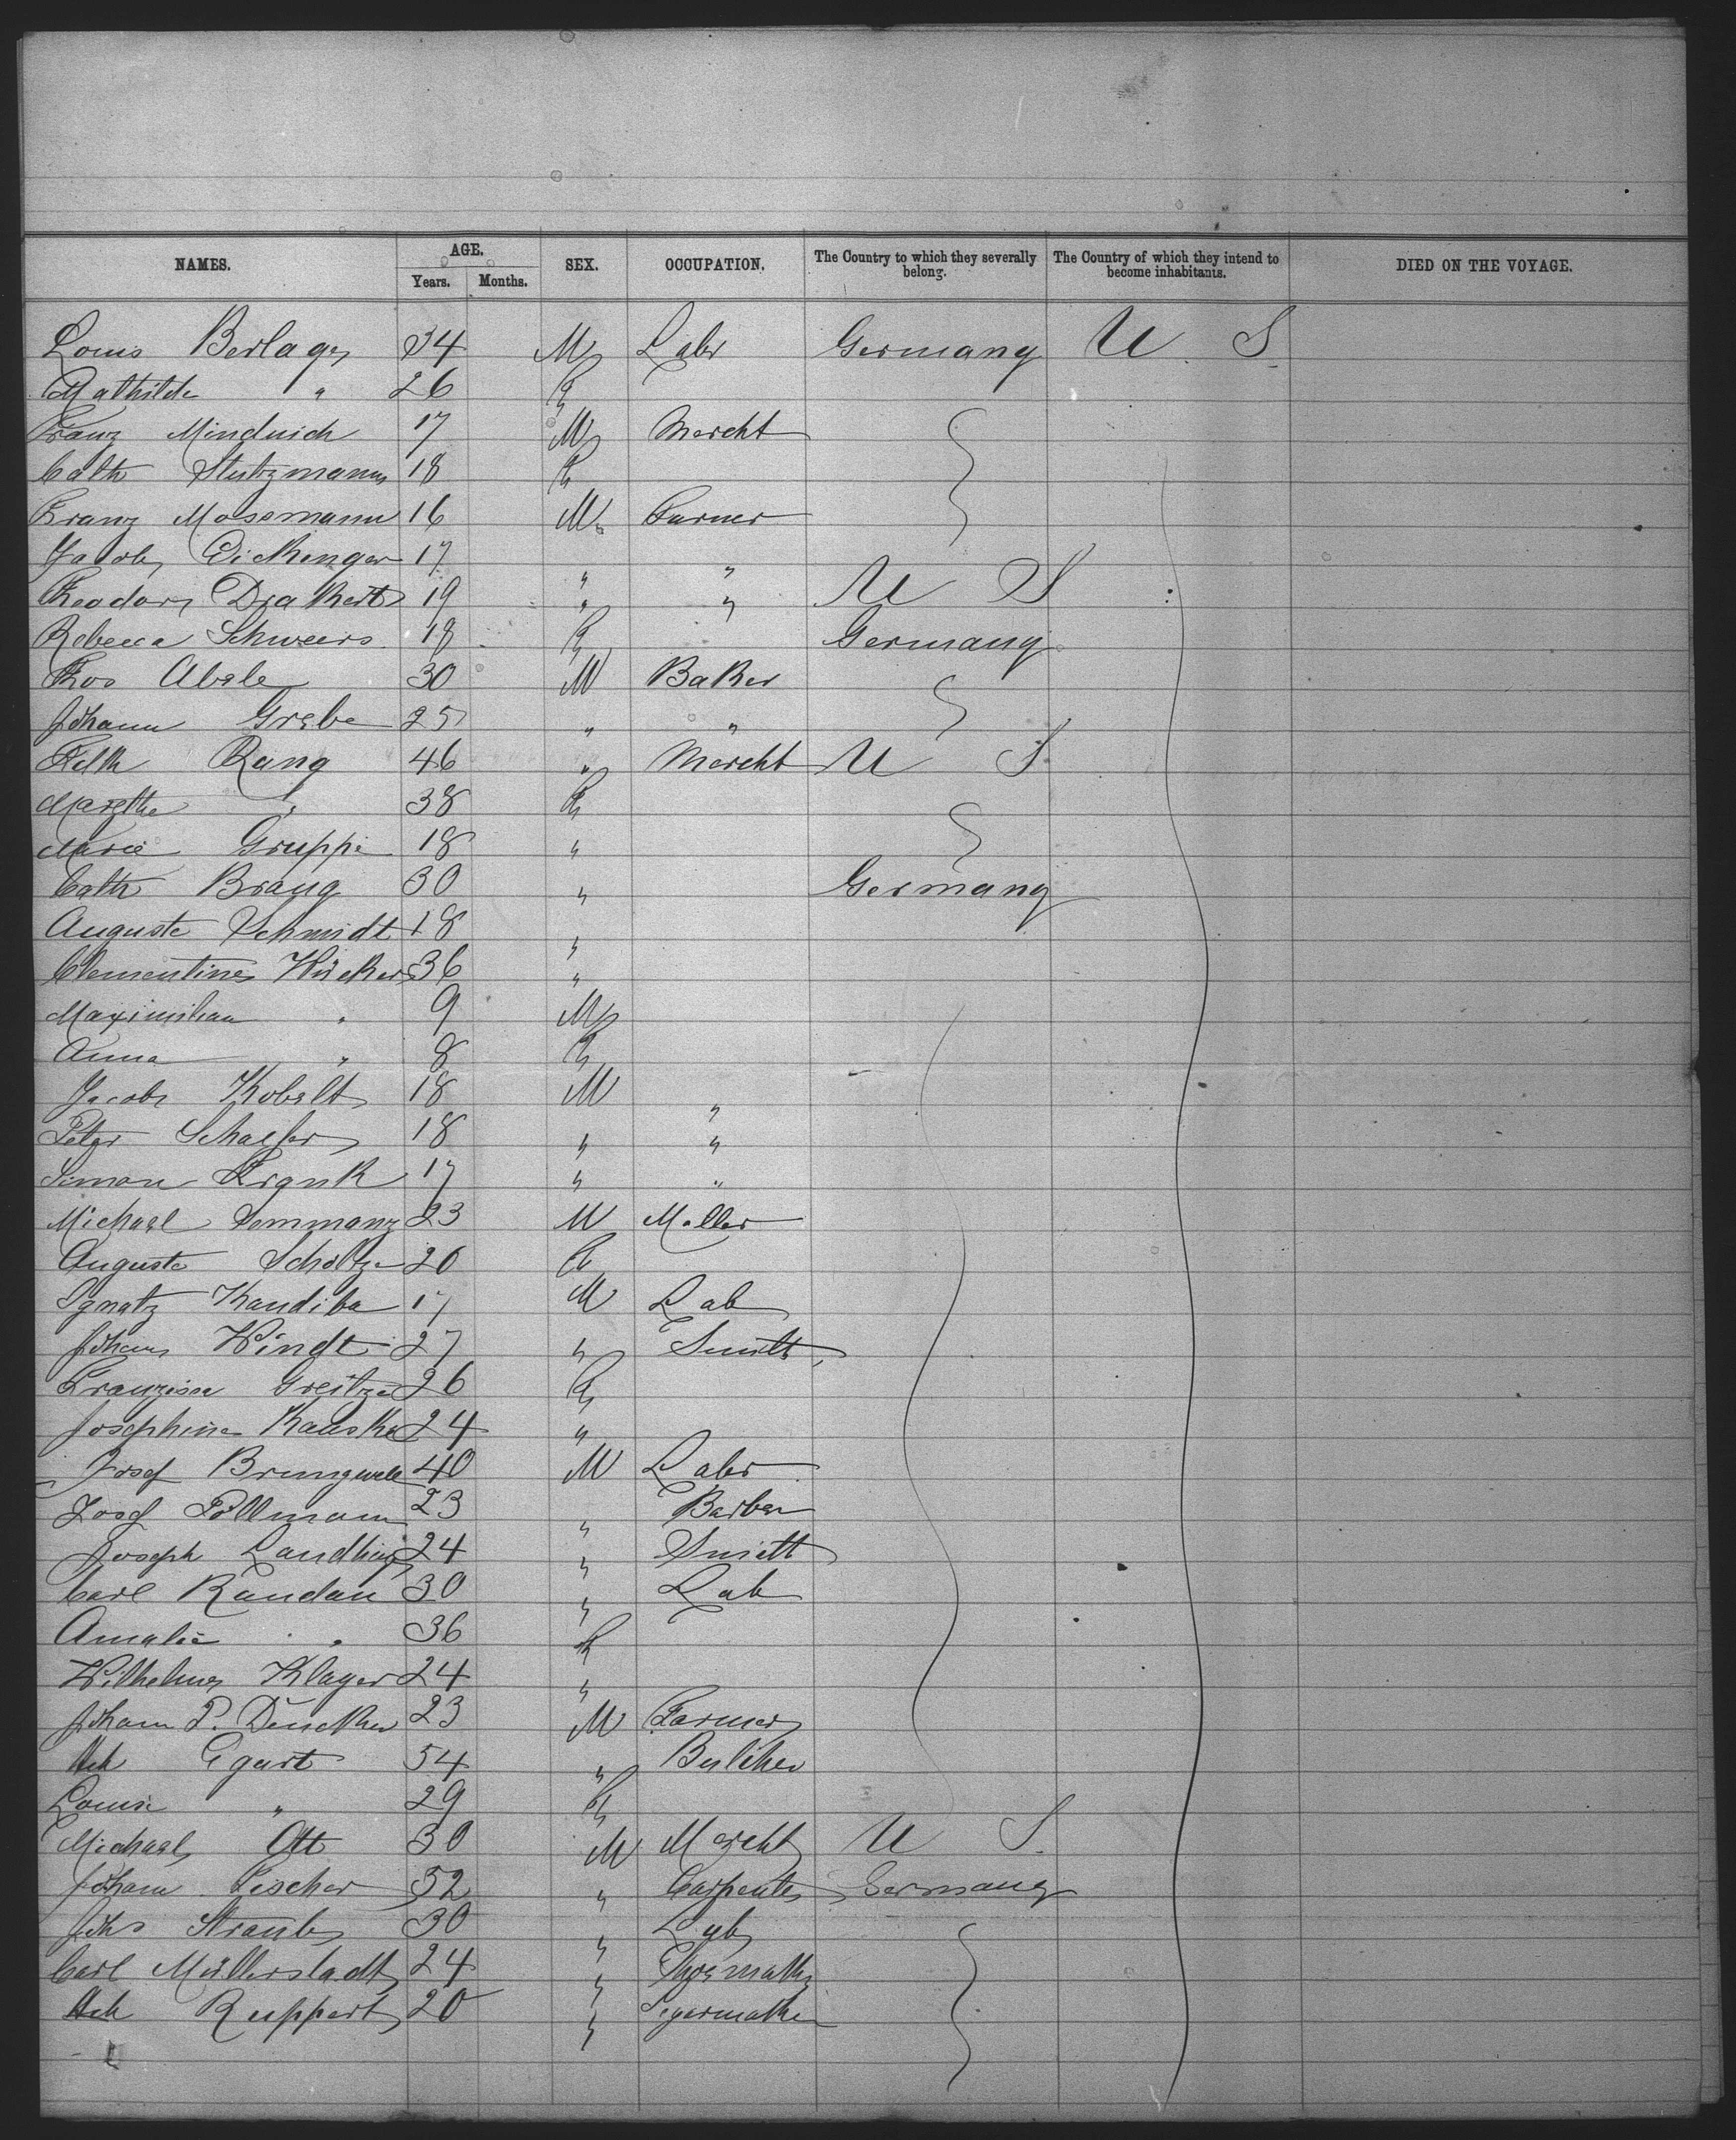 NAMES. AGE. SEX. OCCUPATION. The Country to which they severally belong. The Country of which they intend to become inhabitants. DIED ON THE VOYAGE.
Years. Months.
Louis Berlage 34 M Labr Germany U S
Mathilde " 26 F
Franz 17 M Mercht
Cath Stutzmann 18 F
Franz Mosemann 16 M Farmer
Jacob 17 " "
Theodor 19 " " U S
Rebecca Schweers 18 F Germany
Thos Abele 30 M Baker
Johann Grebe 25 " "
Rang 46 " Mercht U S
Margthe " 38 F
Marie Gruppe 18 "
Cath Braug 30 " Germany
Auguste Schmidt 18 "
Clementine 36 "
Maximilian " 9 M
Anna " 8 F
Jacob Kobelt 18 M "
Peter Schaefer 18 " "
Simon Frank 17 " "
Michael 23 M Miller
Auguste Scholtze 20 F
Ignatz Kandiba 17 M Lab
Johann Windt 27 " Smith
Franzisca 26 F
Josephine 24 "
Josef 40 M Labr
Josef Pöllmann 23 " Barber
Joseph 24 " Smith
Carl Randau 30 " Lab
Amalie " 36 F
Klager 24 "
Johann P. 23 M Farmer
Hch Egart 54 "
Louise " 29 F
Michael Ott 30 M Mercht U S
Johann Fischer 52 " Carpenter Germany
Johs Straub 30 " Lab
Carl Müllerstadt 24 "
Hch Ruppert 20 "